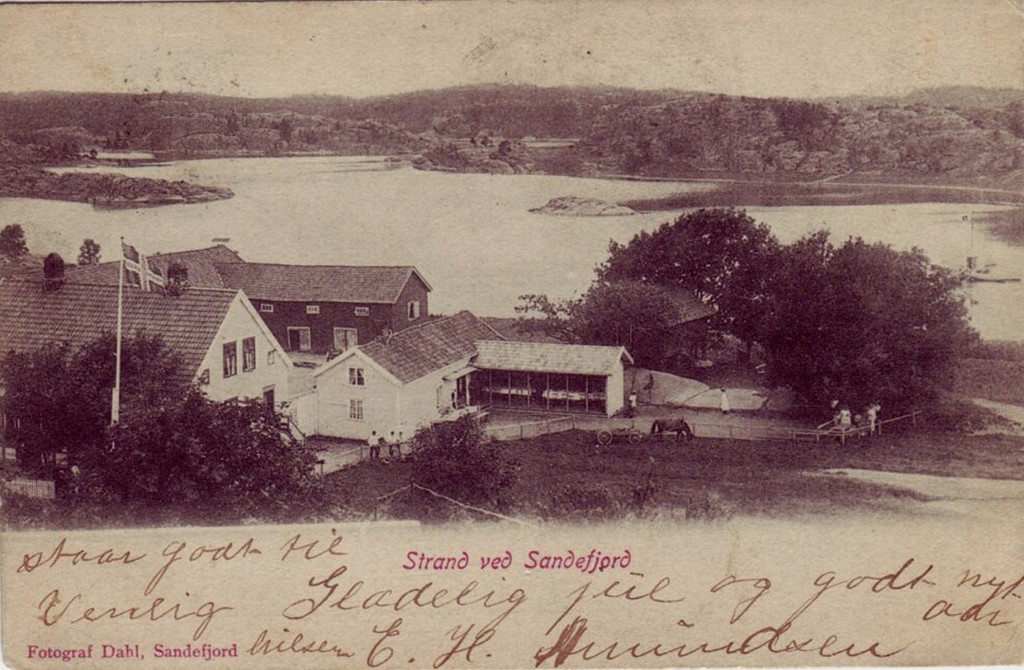 staar godt til
Strand ved Sandefjord
Glædelig jul og godt nyt
aar
Venlig
hilsen E. H. Amundsen
Fotograf Dahl, Sandefjord